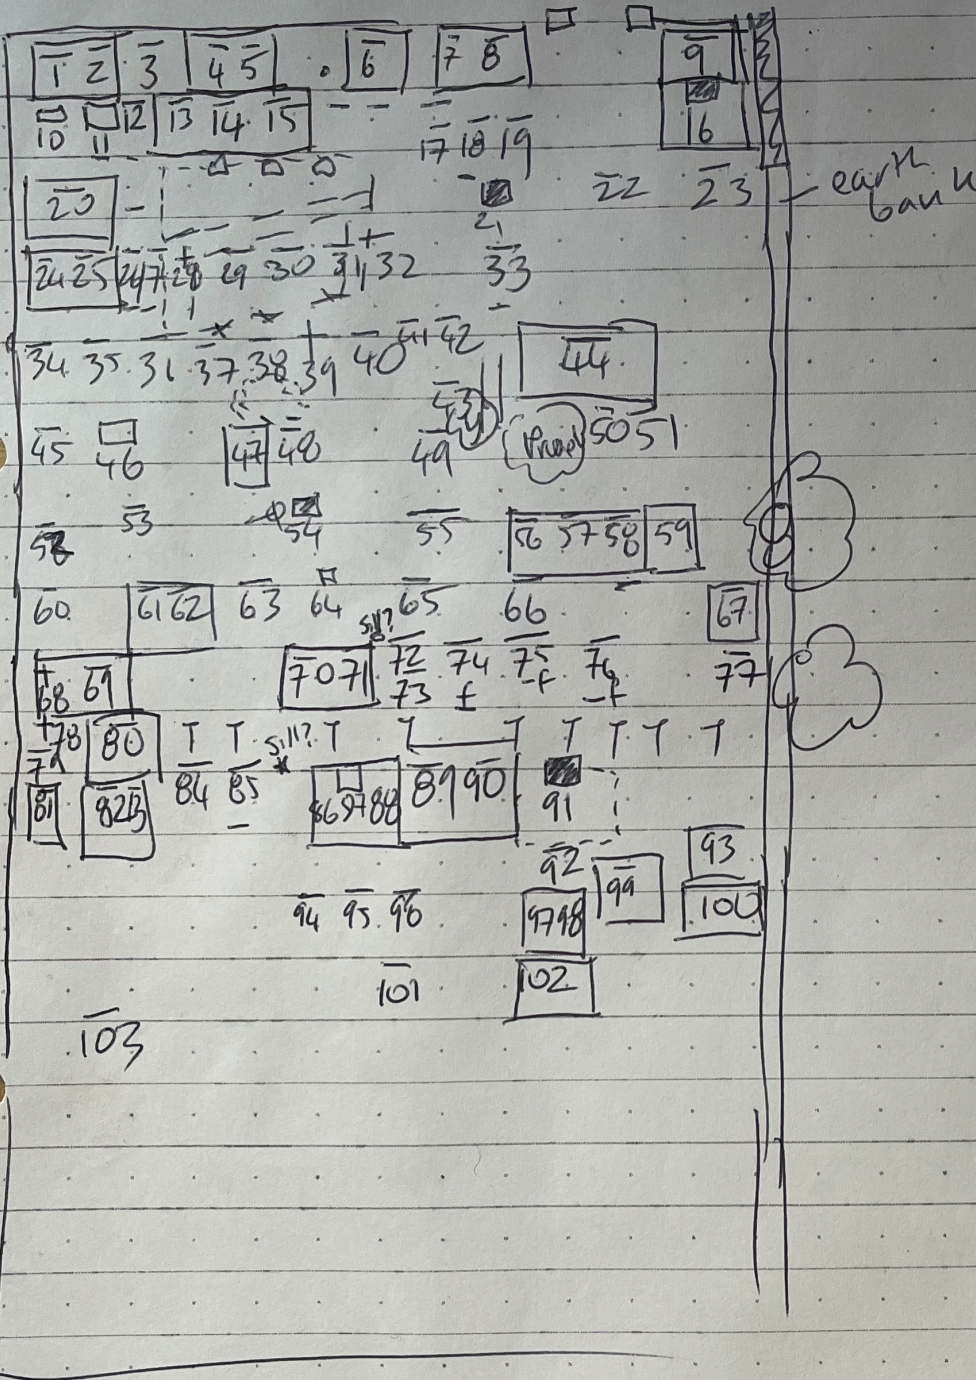 1 2 3 4 5 6 7 8 9
10 11 12 13 14 15 16
17 18 19
20 21 22 23 earth bank
24 25 28 29 30 31 32 33
34 35 31 37 38 39 40 41 42 44
43
45 46 47 48 49 50 51
52 53 54 55 56 57 58 59
60 61 62 63 64 65 66 67
sill?
68 69 70 71 72 74 75 76 77
73 f f f
78 80 T T sill? T T T T T T T
79
81 82 83 84 85 86 87 88 89 90 91
92 93
94 95 96 97 98 99 100
101 102
103